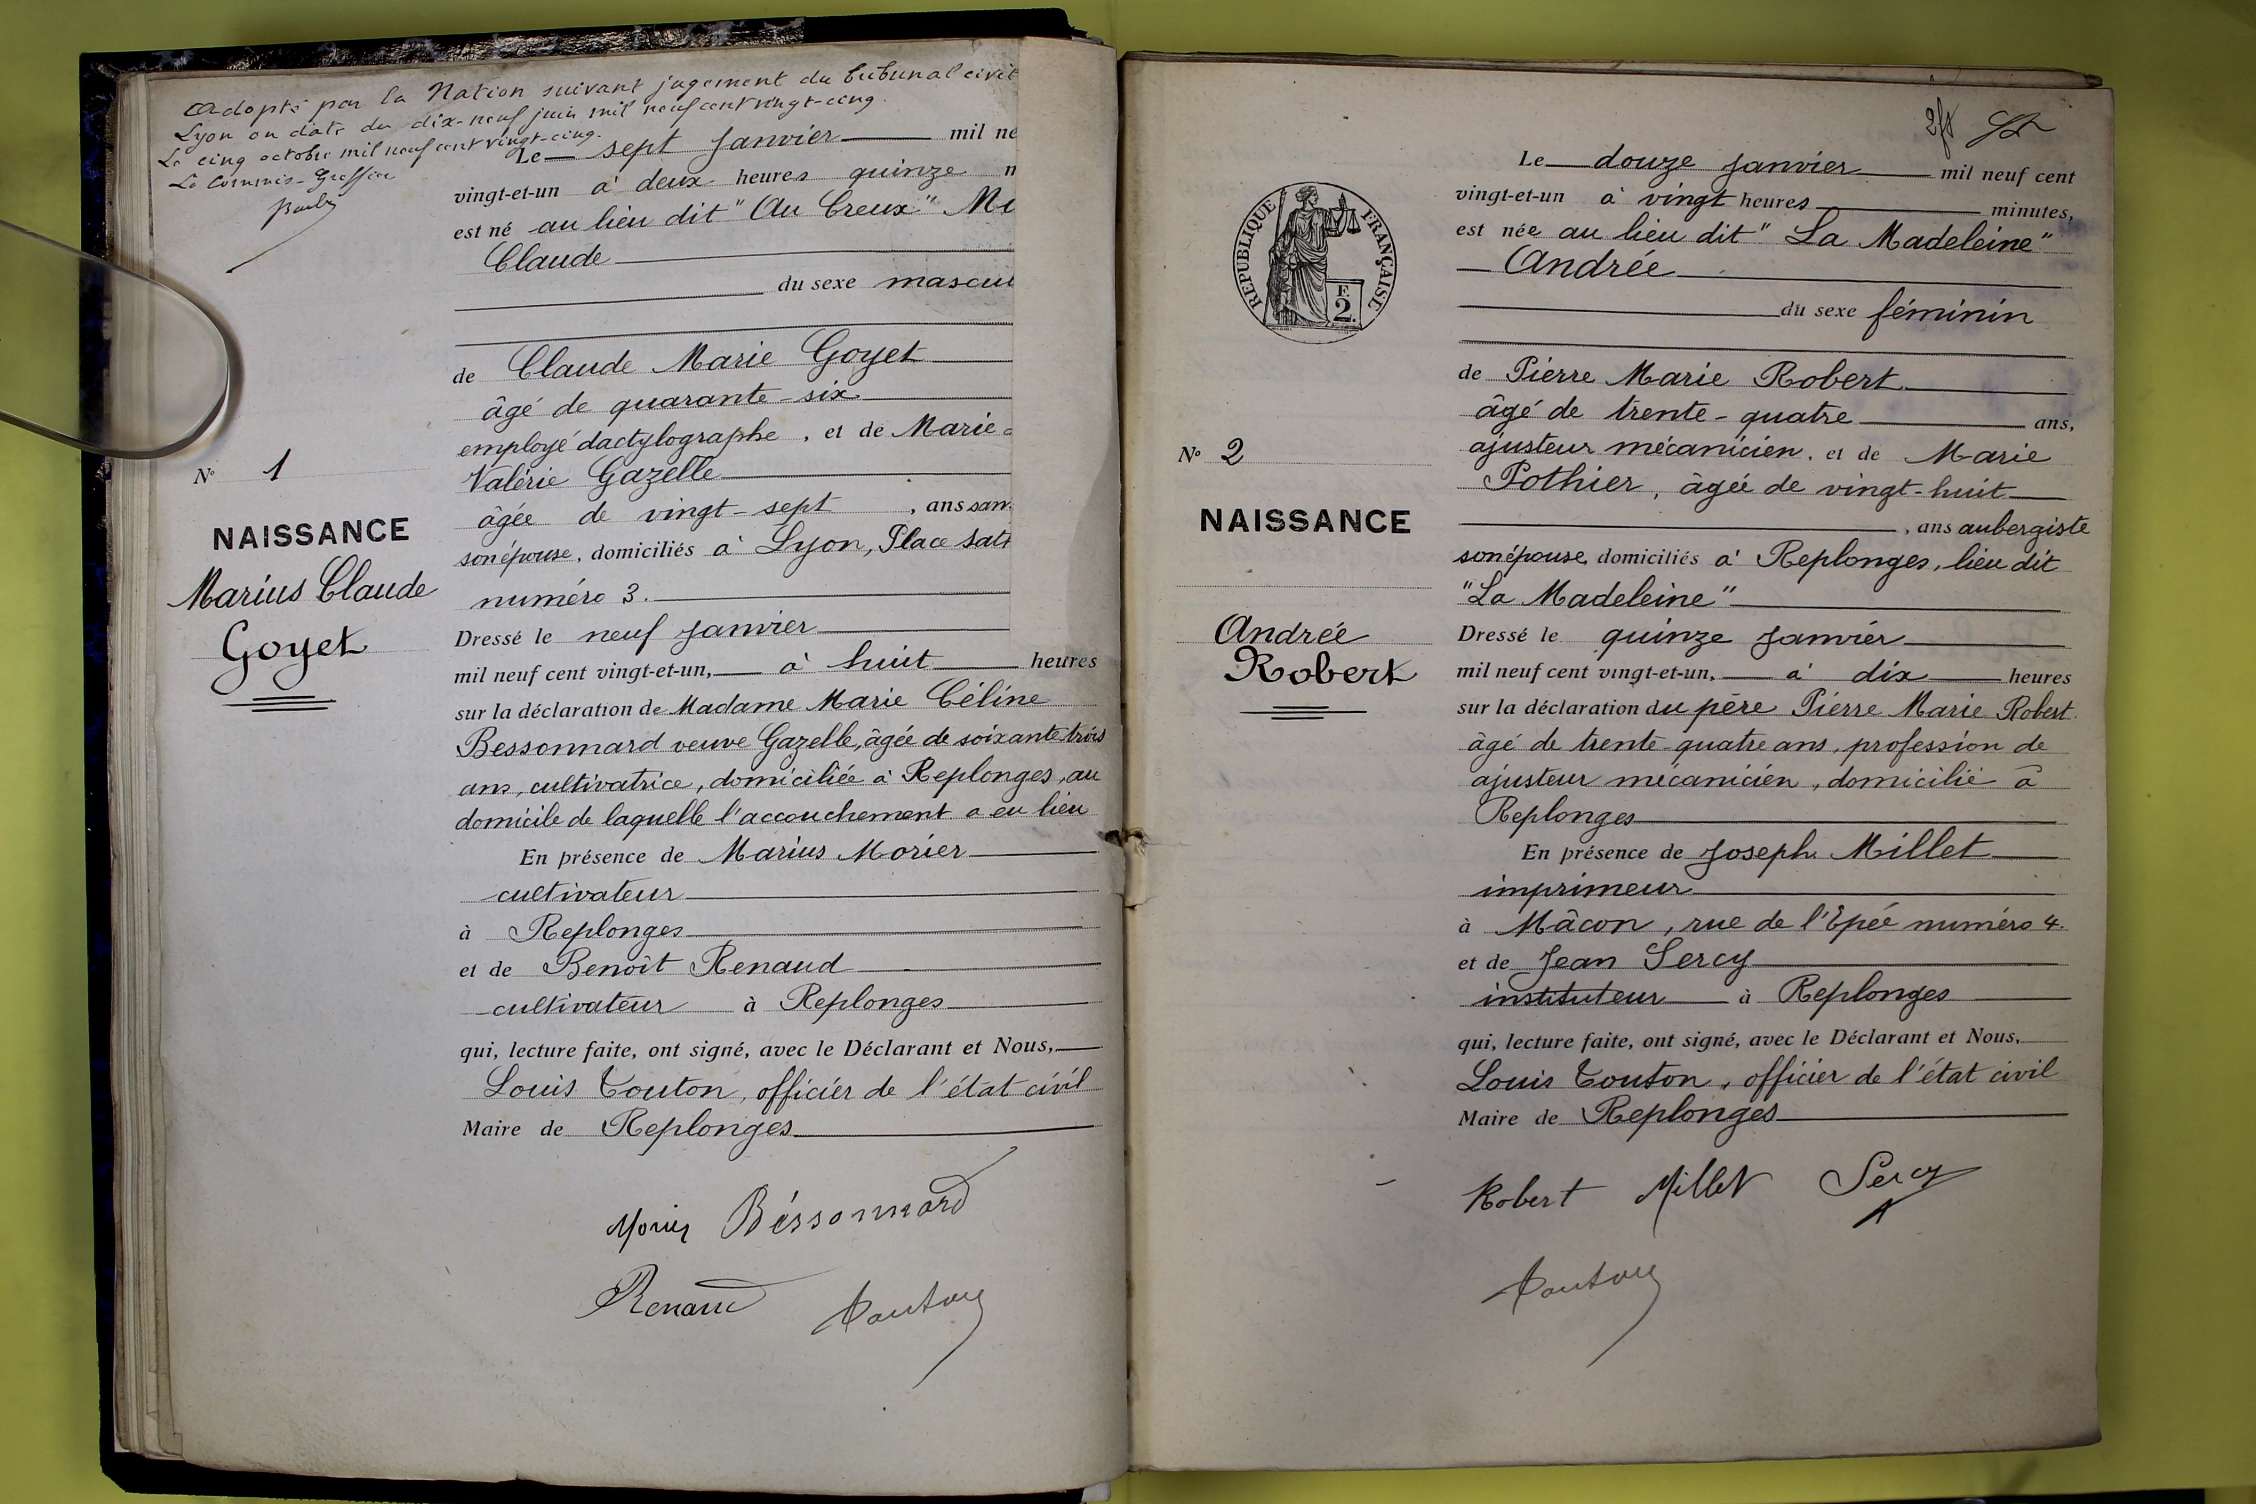 Adopté par la Nation suivant jugement du tribunal civil
Lyon en date du dix-neuf juin mil neuf cent vingt-cinq.
Le cinq octobre mil neuf cent vingt-cinq.
Le Commis-Greffier
Le sept Janvier mil ne
vingt-et-un à deux heures quinze
est né au lieu dit "Au Creux"
Claude
du sexe mascul
de Claude Marie Goyet
âgé de quarante-six
employé dactylographe, et de Marie
Valérie Gazelle
âgée de vingt-sept, ans san
son épouse, domiciliés à Lyon, Place Sat
numéro 3.
Dressé le neuf Janvier
mil neuf cent vingt-et-un, à huit heures
sur la déclaration de Madame Marie Céline
Bessonnard veuve Gazelle, âgée de soixante trois
ans, cultivatrice, domiciliée à Replonges, au
domicile de laquelle l'accouchement a eu lieu
En présence de Marius Morier
cultivateur
à Replonges
et de Benoît Renaud
cultivateur à Replonges
qui, lecture faite, ont signé, avec le Déclarant et Nous,
Louis Touton, officier de l'état civil
Maire de Replonges
Morier Béssonnard
Renaud Touton
No 1
NAISSANCE
Marius Claude
Goyet
Le douze Janvier mil neuf cent
vingt-et-un à vingt heures minutes,
est née au lieu dit "La Madeleine"
Andrée
du sexe féminin
de Pierre Marie Robert
âgé de trente-quatre ans,
ajusteur mécanicien, et de Marie
Pothier, âgée de vingt-huit
, ans aubergiste
son épouse, domiciliés à Replonges, lieu dit
"La Madeleine"
Dressé le quinze Janvier
mil neuf cent vingt-et-un, à dix heures
sur la déclaration du père Pierre Marie Robert
âgé de trente-quatre ans, profession de
ajusteur mécanicien, domicilié à
Replonges
En présence de Joseph Millet
imprimeur
à Mâcon, rue de l'Epée numéro 4.
et de Jean Sercy
instituteur à Replonges
qui, lecture faite, ont signé, avec le Déclarant et Nous,
Louis Touton, officier de l'état civil
Maire de Replonges
Robert Millet Sercy
Touton
REPUBLIQUE FRANÇAISE
F.
2.
No 2
NAISSANCE
Andrée
Robert